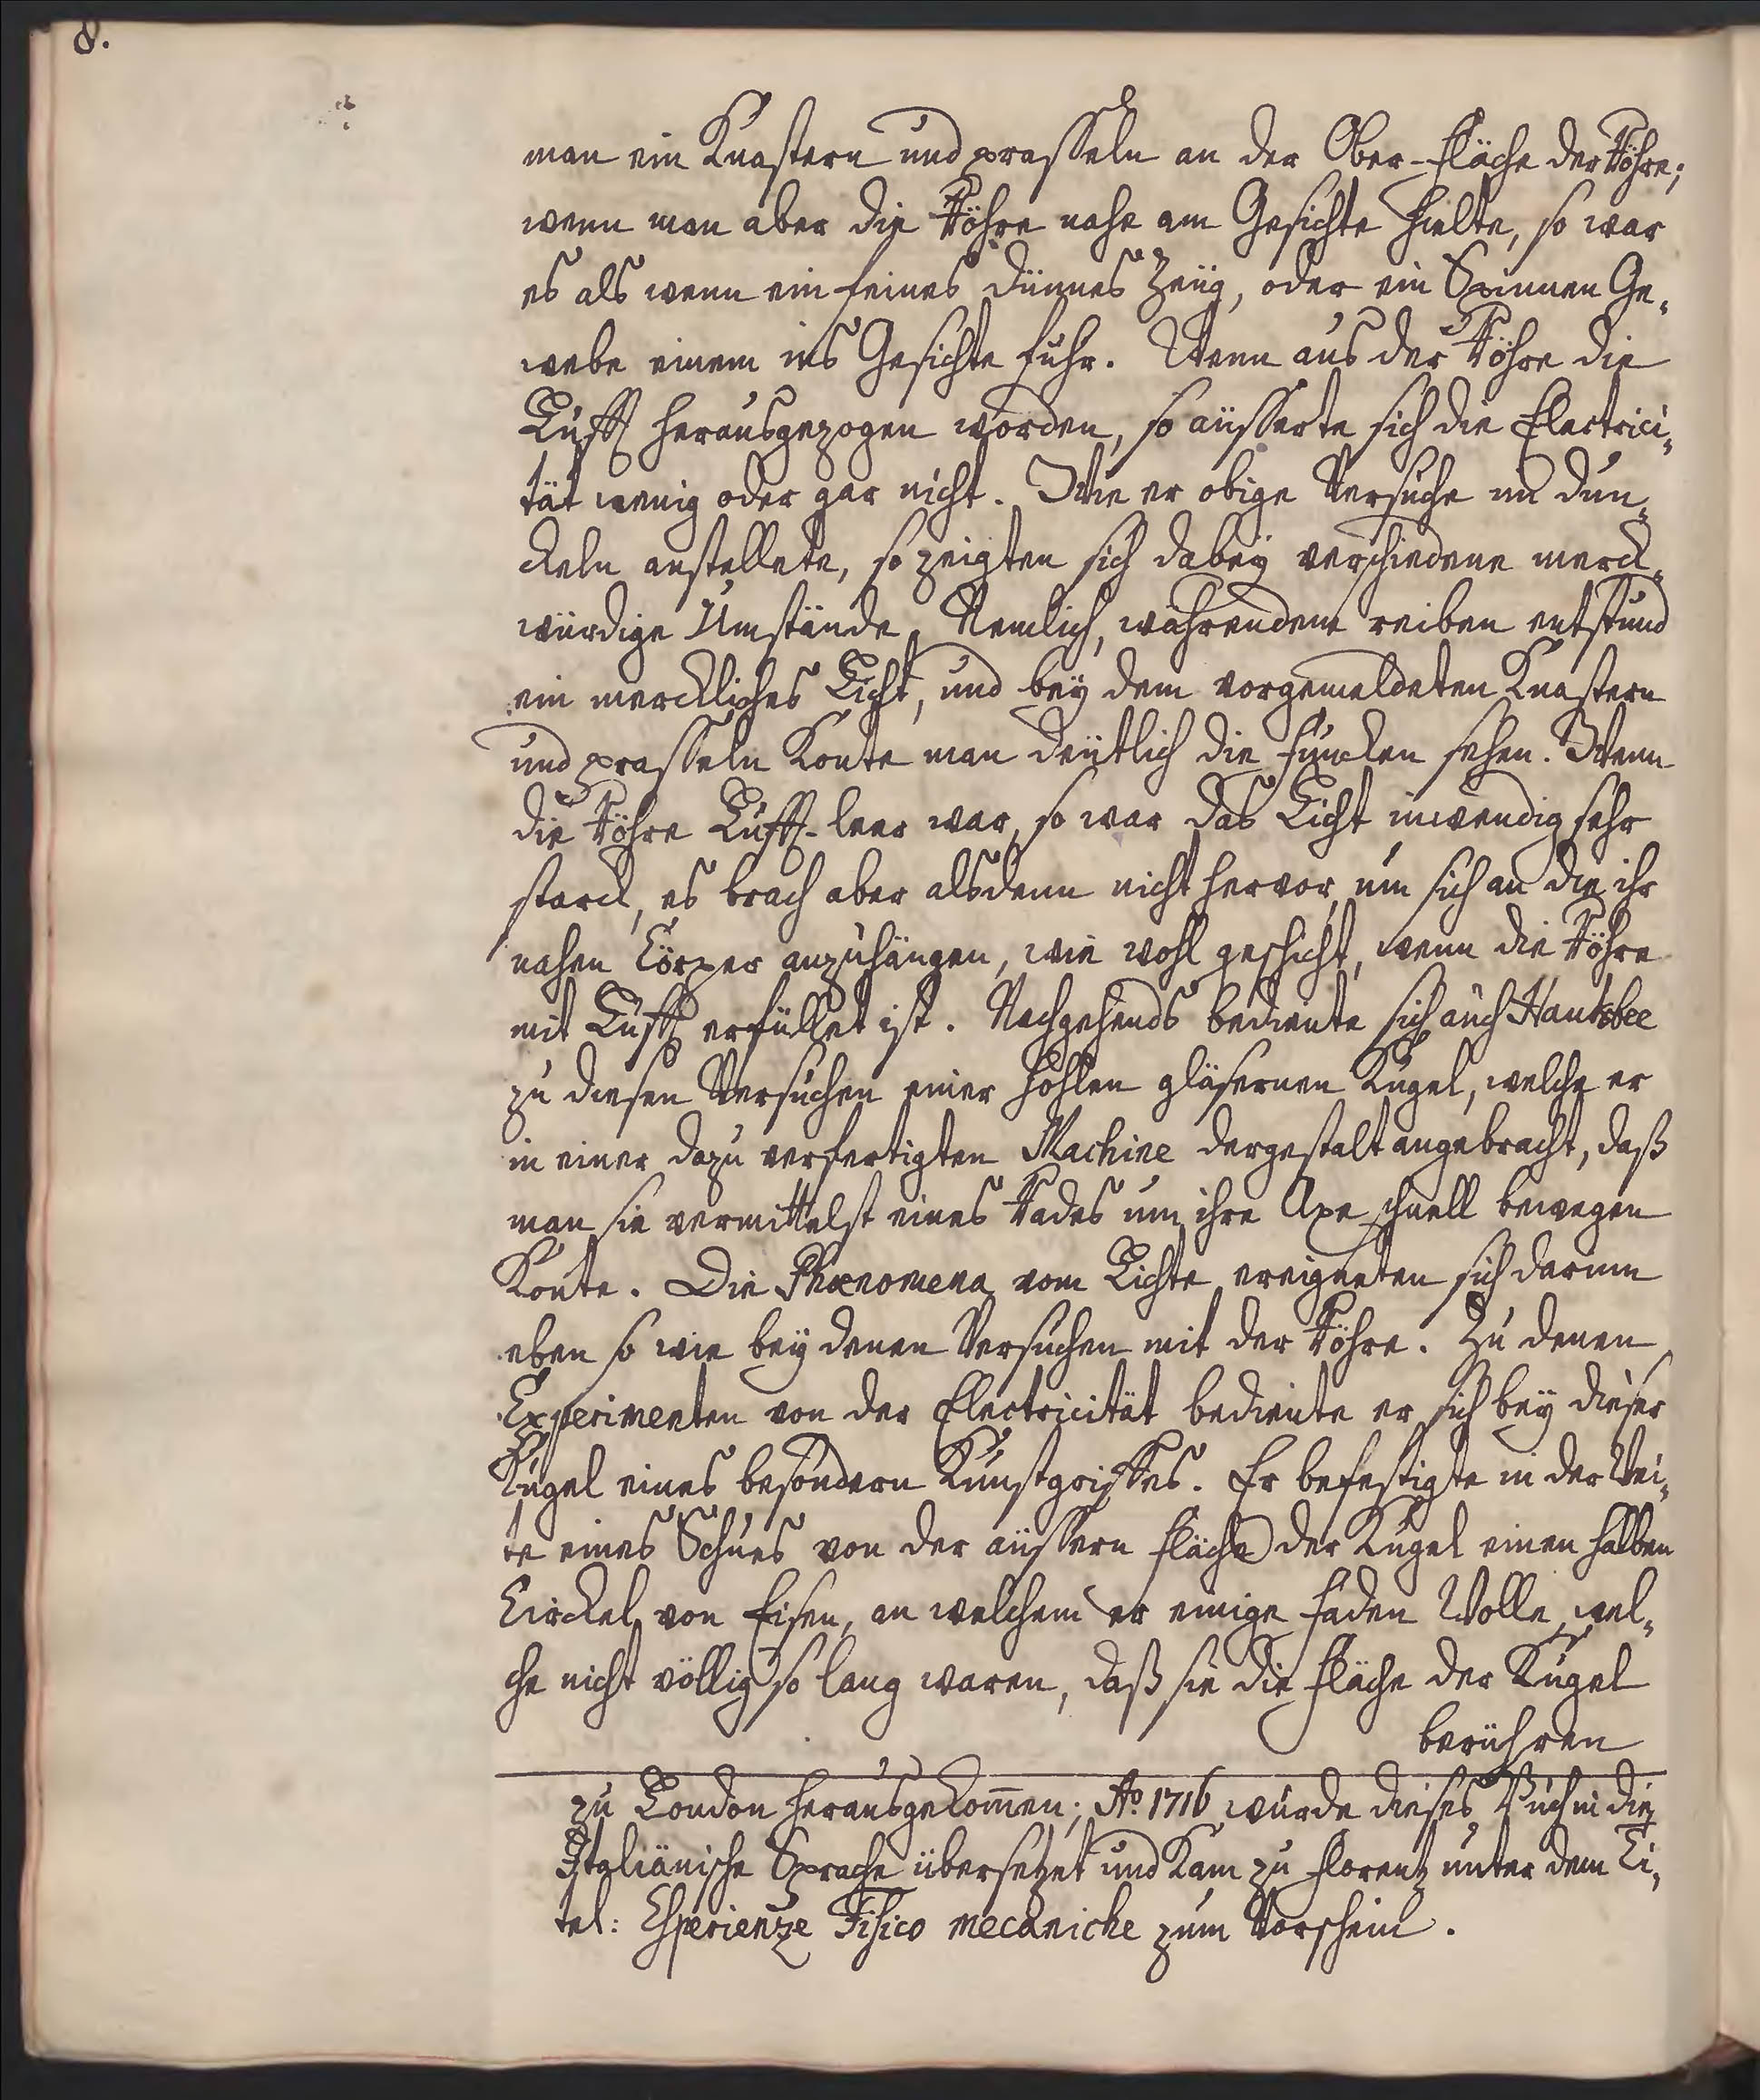 8.
man ein Knastern und prasseln an der Ober-Fläche der Röhre;
wenn man aber die Röhre nahe am Gesichte hielte, so war
es als wenn ein feines dünnes Zeug, oder ein Spinnen Ge„
webe einem ins Gesichte fuhr. Wenn aus der Röhre die
Lufft herausgezogen worden, so äusserte sich die Electrici„
tät wenig oder gar nicht. Wie er obige Versuche im Dun„
ckeln anstellete, so zeigten sich dabey verschiedene merck„
würdige Umstände. Nemlich, währendem reiben entstund
ein merckliches Licht, und bey dem vorgemeldeten Knastern
und prasseln konte man deutlich die Funcken sehen. Wenn
die Röhre Lufft-leer war, so war das Licht inwendig sehr
starck, es brach aber alsdenn nicht hervor, um sich an die ihr
nahen Cörper anzuhängen, wie wohl geschicht, wenn die Röhre
mit Lufft erfüllet ist. Nachgehends bediente sich auch Hauksbee
zu diesen Versuchen einer hohlen gläsernen Kugel, welche er
in einer dazu verfertigten Machine dergestalt angebracht, daß
man sie vermittelst eines Rades um ihre Axe schnell bewegen
Konte. Die Phænomena vom Lichte ereigneten sich darinn
eben so wie bey denen Versuchen mit der Röhre. Zu denen
Experimenten von der Electricität bediente er sich bey dieser
Kugel eines besondern Kunstgriffes. Er befestigte in der Wei„
te eines Schues von der äussern Fläche der Kugel einen halben
Circkel von Eisen, an welchem er einige Faden Wolle, wel„
che nicht völlig so lang waren, daß sie die Fläche der Kugel
berühren
zu London herausgekom̅en; Aº. 1716 wurde dieses Buch in die
Italiänische Sprache übersetzet und kam zu Florentz unter dem Ti„
tel: Esperienze Fisico mecaniche zum Vorschein.